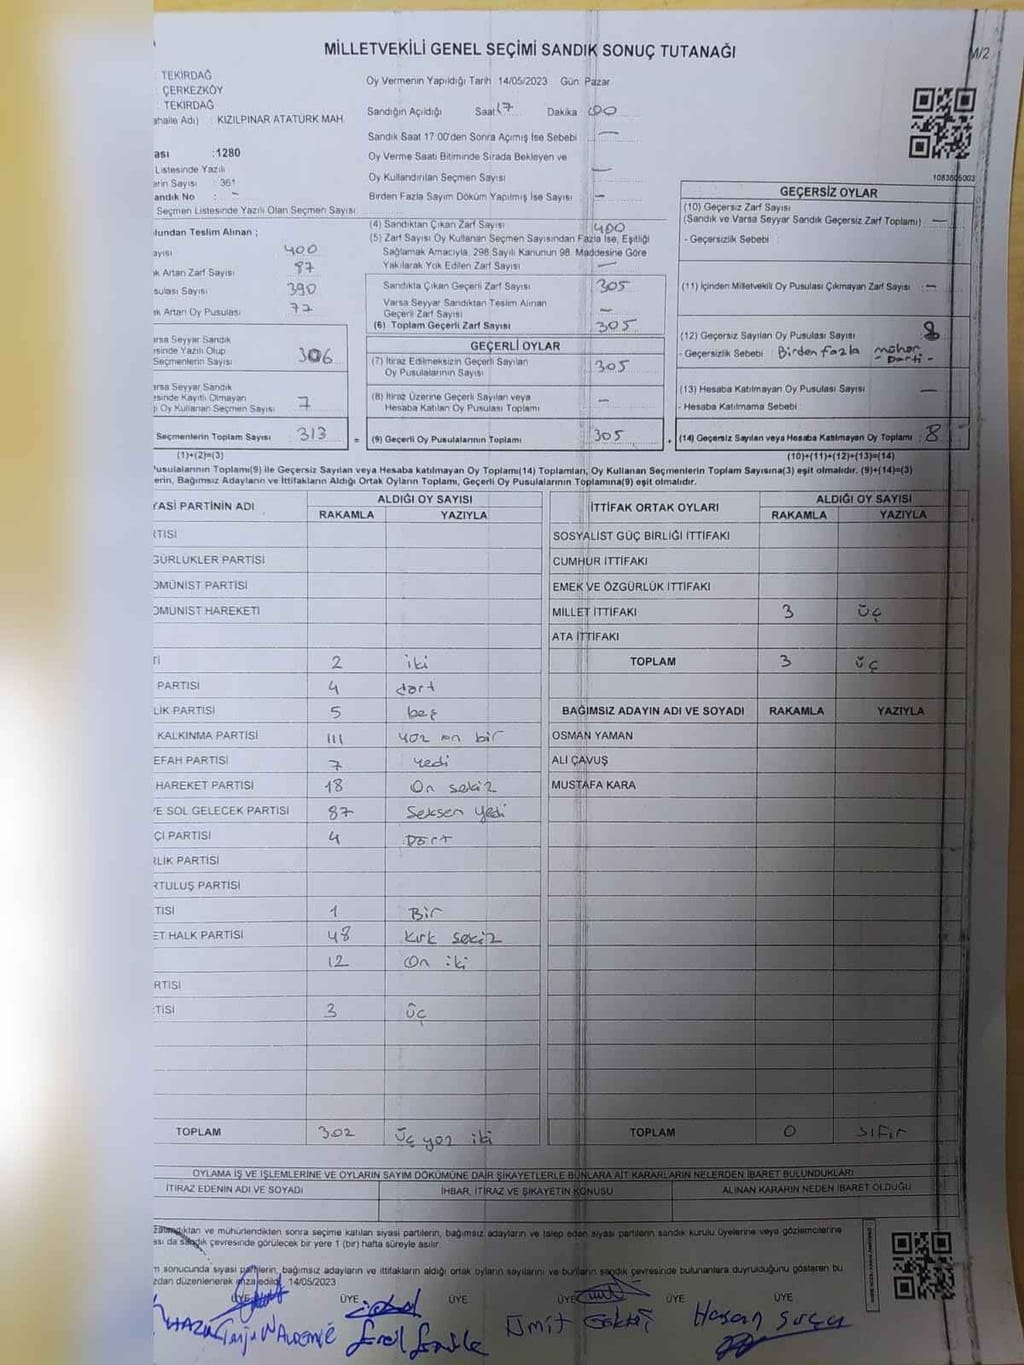 MİLLETVEKİLİ GENEL SEÇİMİ SANDIK SONUÇ TUTANAĞI
M/2
: TEKİRDAĞ
: ÇERKEZKÖY
: TEKİRDAĞ
ahalle Adı) : KIZILPINAR ATATÜRK MAH.
Oy Vermenin Yapıldığı Tarih 14/05/2023 Gün: Pazar
Sandığın Açıldığı Saat 17 Dakika 00
Sandık Saat 17:00'den Sonra Açımış İse Sebebi —
Oy Verme Saati Bitiminde Sırada Bekleyen ve
Oy Kullandırılan Seçmen Sayısı —
Birden Fazla Sayım Döküm Yapılmış İse Sayısı —
ası :1280
Listesinde Yazılı
erin Sayısı : 361
andık No : -
Seçmen Listesinde Yazılı Olan Seçmen Sayısı
ulundan Teslim Alınan ;
ayısı 400
ık Artan Zarf Sayısı 87
sulası Sayısı 390
ık Artan Oy Pusulası 77
(4) Sandıktan Çıkan Zarf Sayısı 400
(5) Zarf Sayısı Oy Kullanan Seçmen Sayısından Fazla İse, Eşitliği
Sağlamak Amacıyla, 298 Sayılı Kanunun 98. Maddesine Göre
Yakılarak Yok Edilen Zarf Sayısı —
Sandıkta Çıkan Geçerli Zarf Sayısı 305
Varsa Seyyar Sandıktan Teslim Alınan
Geçerli Zarf Sayısı —
(6) Toplam Geçerli Zarf Sayısı 305
1083605003
GEÇERSİZ OYLAR
(10) Geçersiz Zarf Sayısı
(Sandık ve Varsa Seyyar Sandık Geçersiz Zarf Toplamı) —
- Geçersizlik Sebebi :
(11) İçinden Milletvekili Oy Pusulası Çıkmayan Zarf Sayısı : —
(12) Geçersiz Sayılan Oy Pusulası Sayısı 8
- Geçersizlik Sebebi Birden fazla mühür
- parti -
(13) Hesaba Katılmayan Oy Pusulası Sayısı —
- Hesaba Katılmama Sebebi
(14) Geçersiz Sayılan veya Hesaba Katılmayan Oy Toplamı : 8
(10)+(11)+(12)+(13)=(14)
arsa Seyyar Sandık
esinde Yazılı Olup
Seçmenlerin Sayısı 306
arsa Seyyar Sandık
esinde Kayıtlı Olmayan
i Oy Kullanan Seçmen Sayısı 7
Seçmenlerin Toplam Sayısı 313 =
(1)+(2)=(3)
GEÇERLİ OYLAR
(7) İtiraz Edilmeksizin Geçerli Sayılan
Oy Pusulalarının Sayısı 305
(8) İtiraz Üzerine Geçerli Sayılan veya
Hesaba Katılan Oy Pusulası Toplamı —
(9) Geçerli Oy Pusulalarının Toplamı 305
usulalarının Toplamı(9) ile Geçersiz Sayılan veya Hesaba katılmayan Oy Toplamı(14) Toplamları, Oy Kullanan Seçmenlerin Toplam Sayısına(3) eşit olmalıdır. (9)+(14)=(3)
erin, Bağımsız Adayların ve İttifakların Aldığı Ortak Oyların Toplamı, Geçerli Oy Pusulalarının Toplamına(9) eşit olmalıdır.
YASİ PARTİNİN ADI ALDIĞI OY SAYISI
RAKAMLA YAZIYLA
RTİSİ
GÜRLÜKLER PARTİSİ
OMÜNİST PARTİSİ
OMÜNİST HAREKETİ
Tİ 2 iki
PARTİSİ 4 dört
LİK PARTİSİ 5 beş
KALKINMA PARTİSİ 111 yüz on bir
EFAH PARTİSİ 7 yedi
HAREKET PARTİSİ 18 On sekiz
VE SOL GELECEK PARTİSİ 87 Seksen yedi
Çİ PARTİSİ 4 Dört
RLİK PARTİSİ
RTULUŞ PARTİSİ
TİSİ 1 Bir
ET HALK PARTİSİ 48 Kırk sekiz
12 On iki
RTİSİ
TİSİ 3 üç
TOPLAM 302 Üç yüz iki
İTTİFAK ORTAK OYLARI ALDIĞI OY SAYISI
RAKAMLA YAZIYLA
SOSYALİST GÜÇ BİRLİĞİ İTTİFAKI
CUMHUR İTTİFAKI
EMEK VE ÖZGÜRLÜK İTTİFAKI
MİLLET İTTİFAKI 3 üç
ATA İTTİFAKI
TOPLAM 3 üç
BAĞIMSIZ ADAYIN ADI VE SOYADI RAKAMLA YAZIYLA
OSMAN YAMAN
ALİ ÇAVUŞ
MUSTAFA KARA
TOPLAM 0 SIFIR
OYLAMA İŞ VE İŞLEMLERİNE VE OYLARIN SAYIM DÖKÜMÜNE DAİR ŞİKAYETLERLE BUNLARA AİT KARARLARIN NELERDEN İBARET BULUNDUKLARI
İTİRAZ EDENİN ADI VE SOYADI İHBAR, İTİRAZ VE ŞİKAYETİN KONUSU ALINAN KARARIN NEDEN İBARET OLDUĞU
zalandıktan ve mühürlendikten sonra seçime katılan siyasi partilerin, bağımsız adayların ve talep eden siyasi partilerin sandık kurulu üyelerine veya gözlemcilerine
ası da sandık çevresinde görülecek bir yere 1 (bir) hafta süreyle asılır.
m sonucunda siyasi partilerin, bağımsız adayların ve ittifakların aldığı ortak oyların sayılarını ve bunların sandık çevresinde bulunanlara duyrulduğunu gösteren bu
zdan düzenlenerek imza edildi. 14/05/2023
ÜYE ÜYE ÜYE ÜYE ÜYE ÜYE
Ümit Göktaş
Hasan